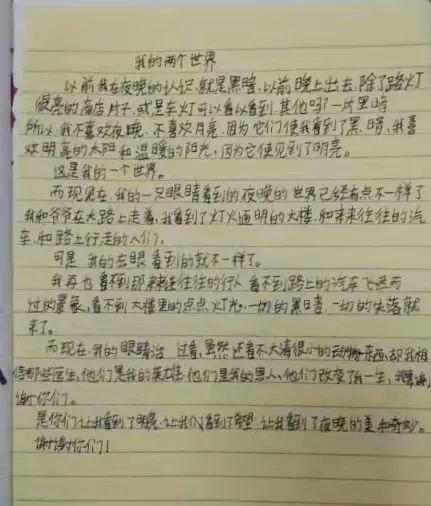 我的两个世界
以前我在夜晚的认识就是黑暗.以前晚上出去.除了路灯
很亮的商店片子.或是车灯可以看以看到.其他吗?一片黑暗
所以我不喜欢夜晚.不喜欢月亮.因为它们使我看到了黑暗,我喜
欢明亮的太阳和温暖的阳光,因为它使见到了明亮。
这是我的一个世界。
而现在,我的一只眼睛看到的夜晚的世界已经有点不一样了
我和爷爷在大路上走着,我看到了灯火通明的大楼.和来来往往的汽
车,和路上行走的人们,
可是我的左眼看到的就不一样了。
我再也看不到那来来往往的行人看不到路上的汽车飞驰而
过的景象,看不到大楼里的点点灯光.一切的黑暗,一切的失落就
来了。
而现在我的眼睛治过着,虽然还看不大清很小的东西,却我相
信那些医生,他们是我的英雄他们是我的恩人,他们改变了我一生,我要谢
谢你们。
是你们让我看到了明亮.让我们看到了希望.让我看到了夜晚的美和奇妙。
谢谢你们!